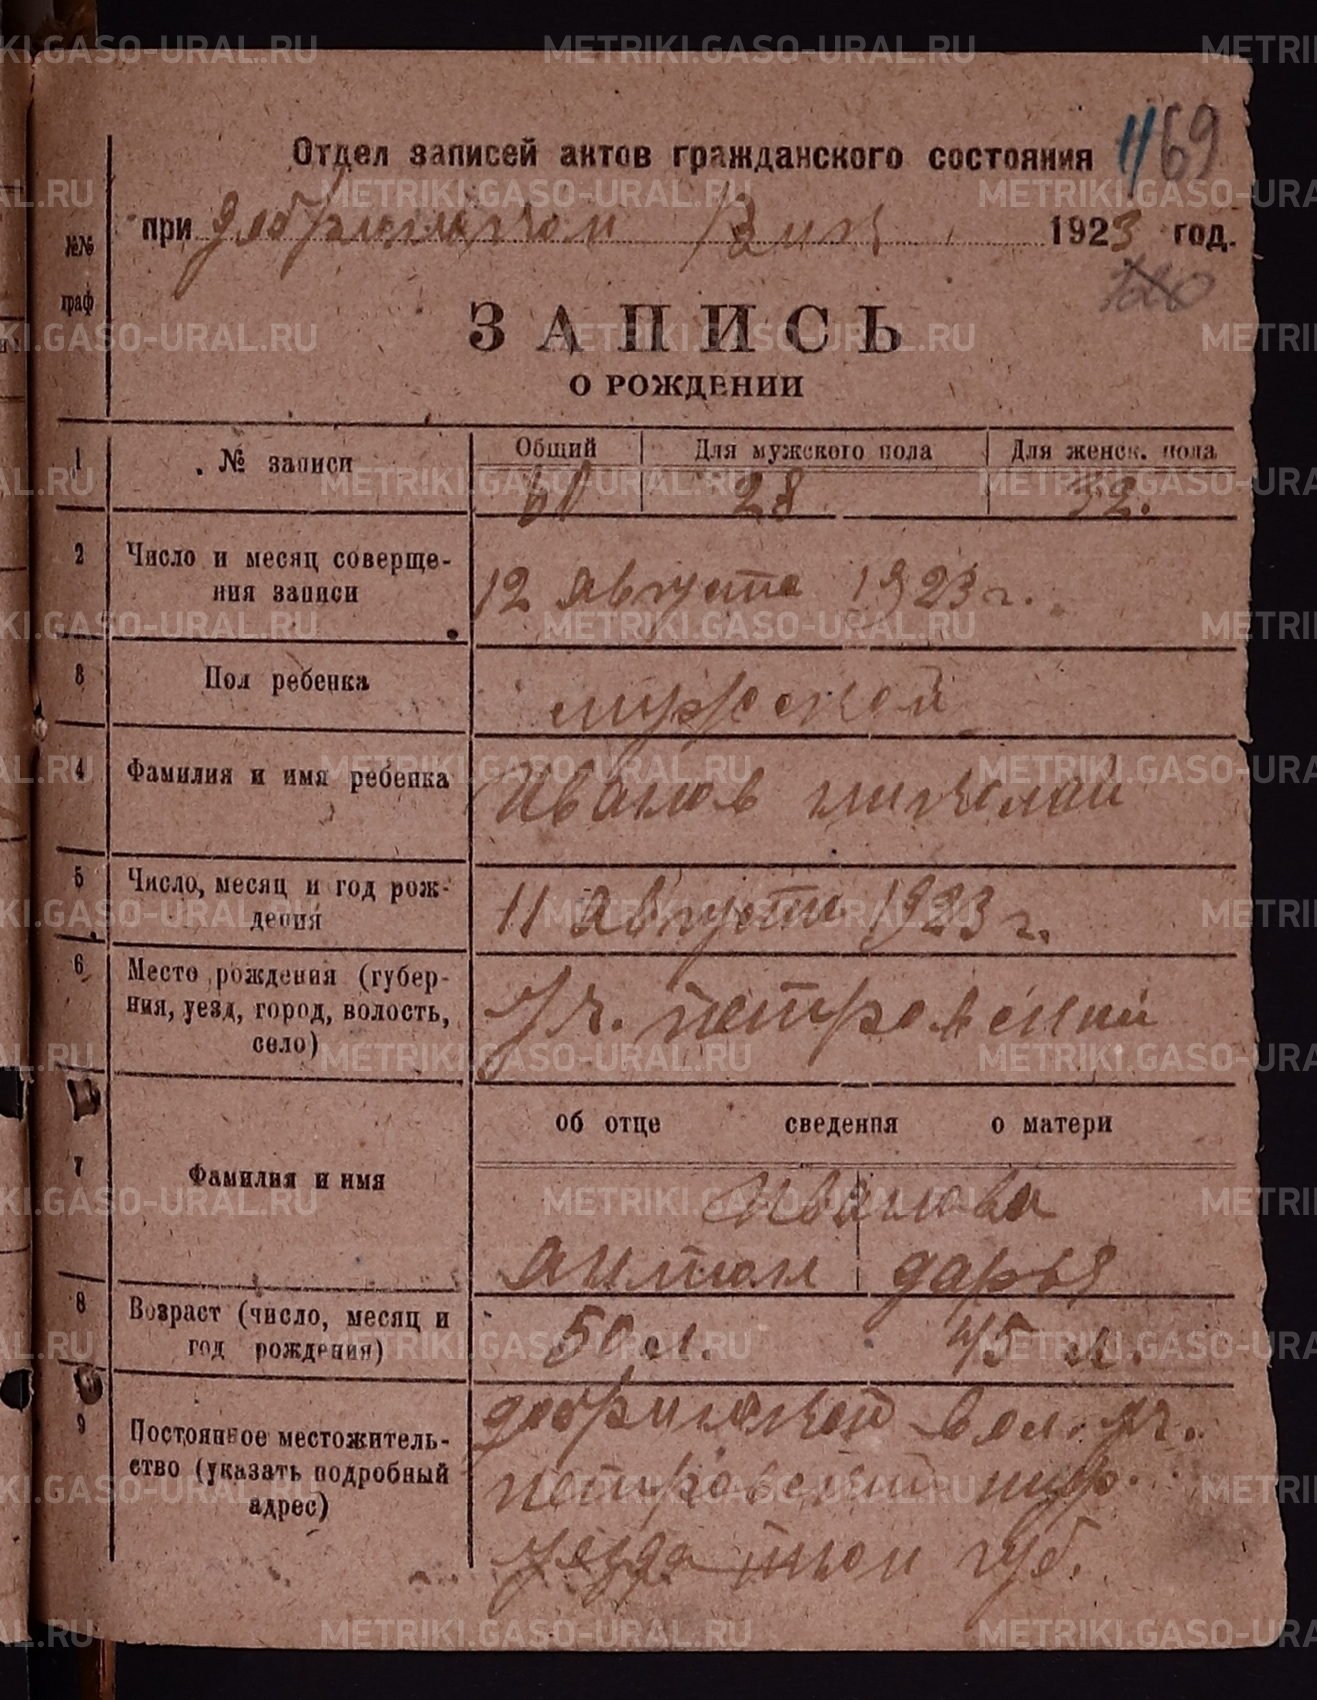 1169
Отдел записей актов гражданского состояния
при Добринском Вик 1923 год.
№№ граф
ЗАПИСЬ
О РОЖДЕНИИ
1 № записи Общий Для мужского пола Для женск. пола
60 28 32.
2 Число и месяц соверше-
ния записи
12 Августа 1923 г.
3 Пол ребенка мужской
4 Фамилия и имя ребенка Иванов николай
5 Число, месяц и год рож-
дения
11 Августа 1923 г.
6 Место рождения (губер-
ния, уезд, город, волость,
село)
уч. петровский
об отце сведения о матери
7 Фамилия и имя
Иванова
антон дарья
8 Возраст (число, месяц и
год рождения)
50 л. 45 л.
9 Постоянное местожитель-
ство (указать подробный
адрес)
добринской вол. уч.
петровский
уезда губ.
METRIKI.GASO-URAL.RU